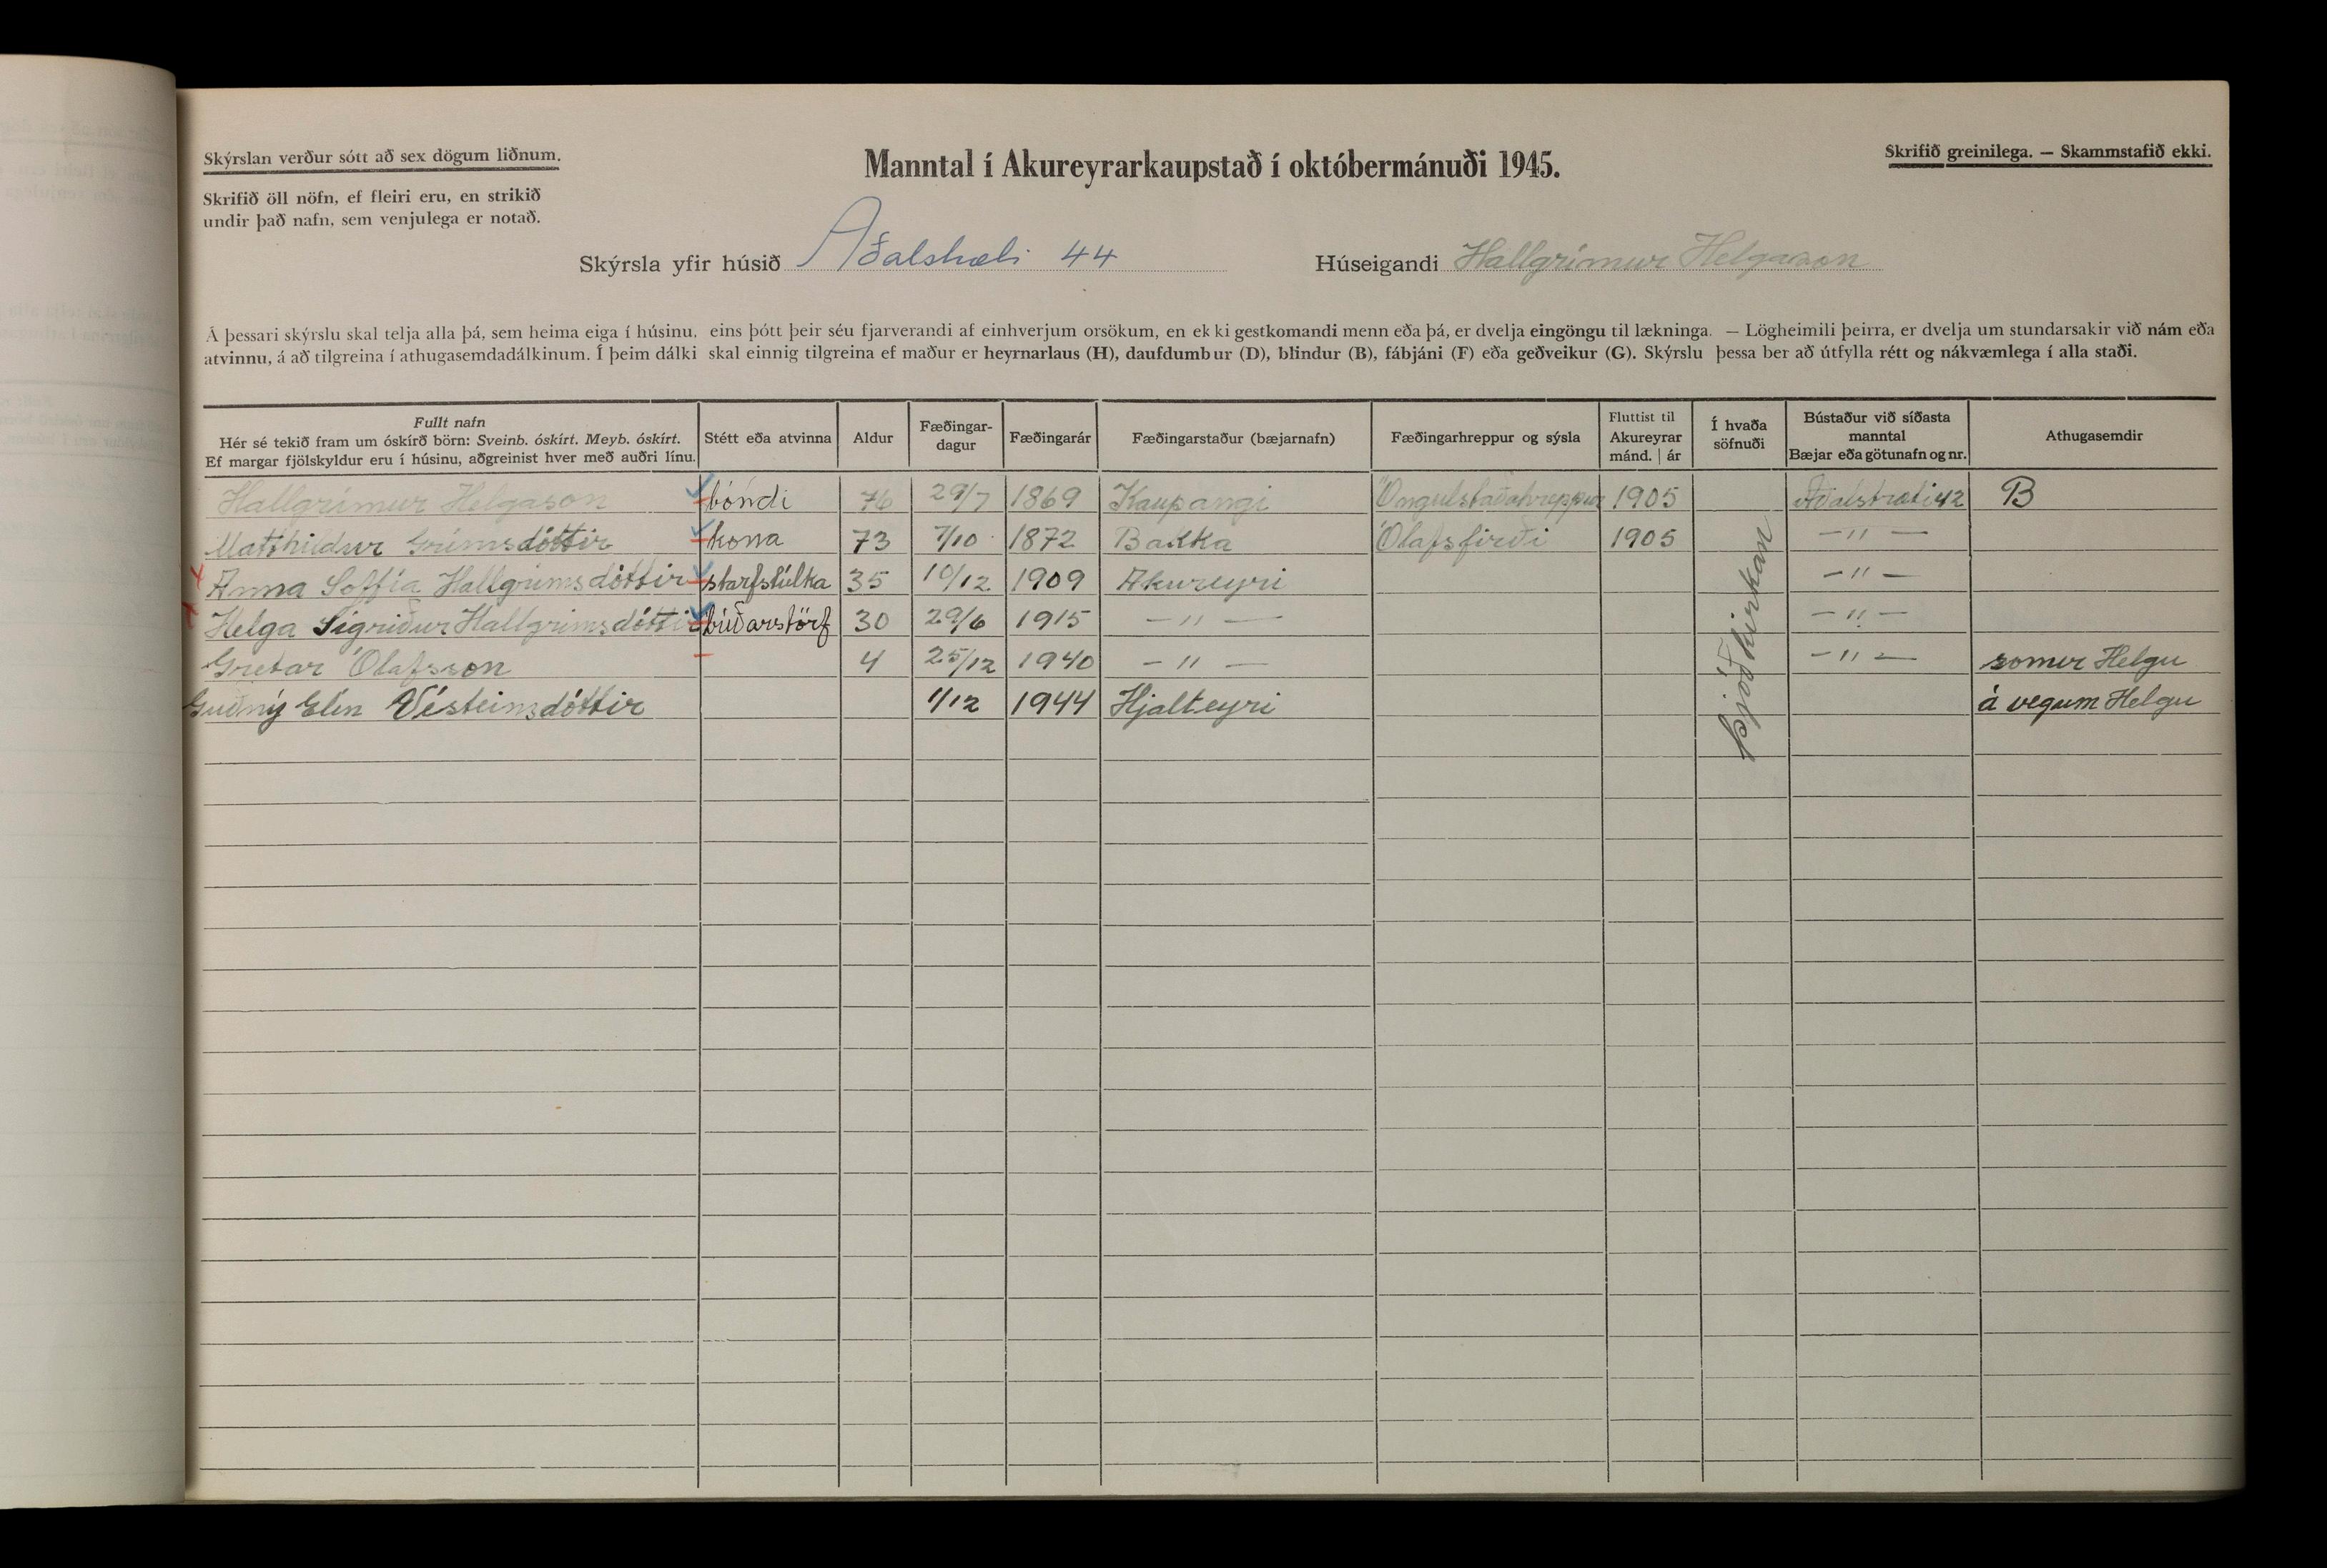 Skýrslan verður sótt að sex dögum liðnum.
Skrifið öll nöfn, ef fleiri eru, en strikið
undir það nafn, sem venjulega er notað.
Manntal í Akureyrarkaupstað í októbermánuði 1945.
Skrifið greinilega. — Skammstafið ekki.
Skýrsla yfir húsið Aðalstræti 44 Húseigandi Hallgrímur Helgason
Á þessari skýrslu skal telja alla þá, sem heima eiga í húsinu, eins þótt þeir séu fjarverandi af einhverjum orsökum, en ekki gestkomandi menn eða þá, er dvelja eingöngu til lækninga. — Lögheimili þeirra, er dvelja um stundarsakir við nám eða
atvinnu, á að tilgreina í athugasemdadálkinum. Í þeim dálki skal einnig tilgreina ef maður er heyrnarlaus (H), daufdumbur (D), blindur (B), fábjáni (F) eða geðveikur (G). Skýrslu þessa ber að útfylla rétt og nákvæmlega í alla staði.
Fullt nafn
Hér sé tekið fram um óskírð börn: Sveinb. óskírt. Meyb. óskírt.
Ef margar fjölskyldur eru í húsinu, aðgreinist hver með auðri línu.
Stétt eða atvinna
Aldur
Fæðingar-
dagur
Fæðingarár
Fæðingarstaður (bæjarnafn)
Fæðingarhreppur og sýsla
Fluttist til
Akureyrar
mánd. | ár
Í hvaða
söfnuði
Bústaður við síðasta
manntal
Bæjar eða götunafn og nr.
Athugasemdir
Hallgrímur Helgason bóndi 76 29/7 1869 Kaupangi Öngulstaðahreppur 1905 Aðalstræti 42 B
Matthildur Grímsdóttir kona 73 7/10 1872 Bakka Ólafsfirði 1905 — 〃 —
Anna Soffía Hallgrímsdóttir starfstúlka 35 10/12 1909 Akureyri — 〃 —
Helga Sigríður Hallgrímsdóttir búðarstörf 30 29/6 1915 — 〃 — — 〃 —
Gretar Ólafsson 4 25/12 1940 — 〃 — — 〃 — sonur Helgu
Guðný Elín Vésteinsdóttir 1/12 1944 Hjalteyri á vegum Helgu
Þjóðkirkjan